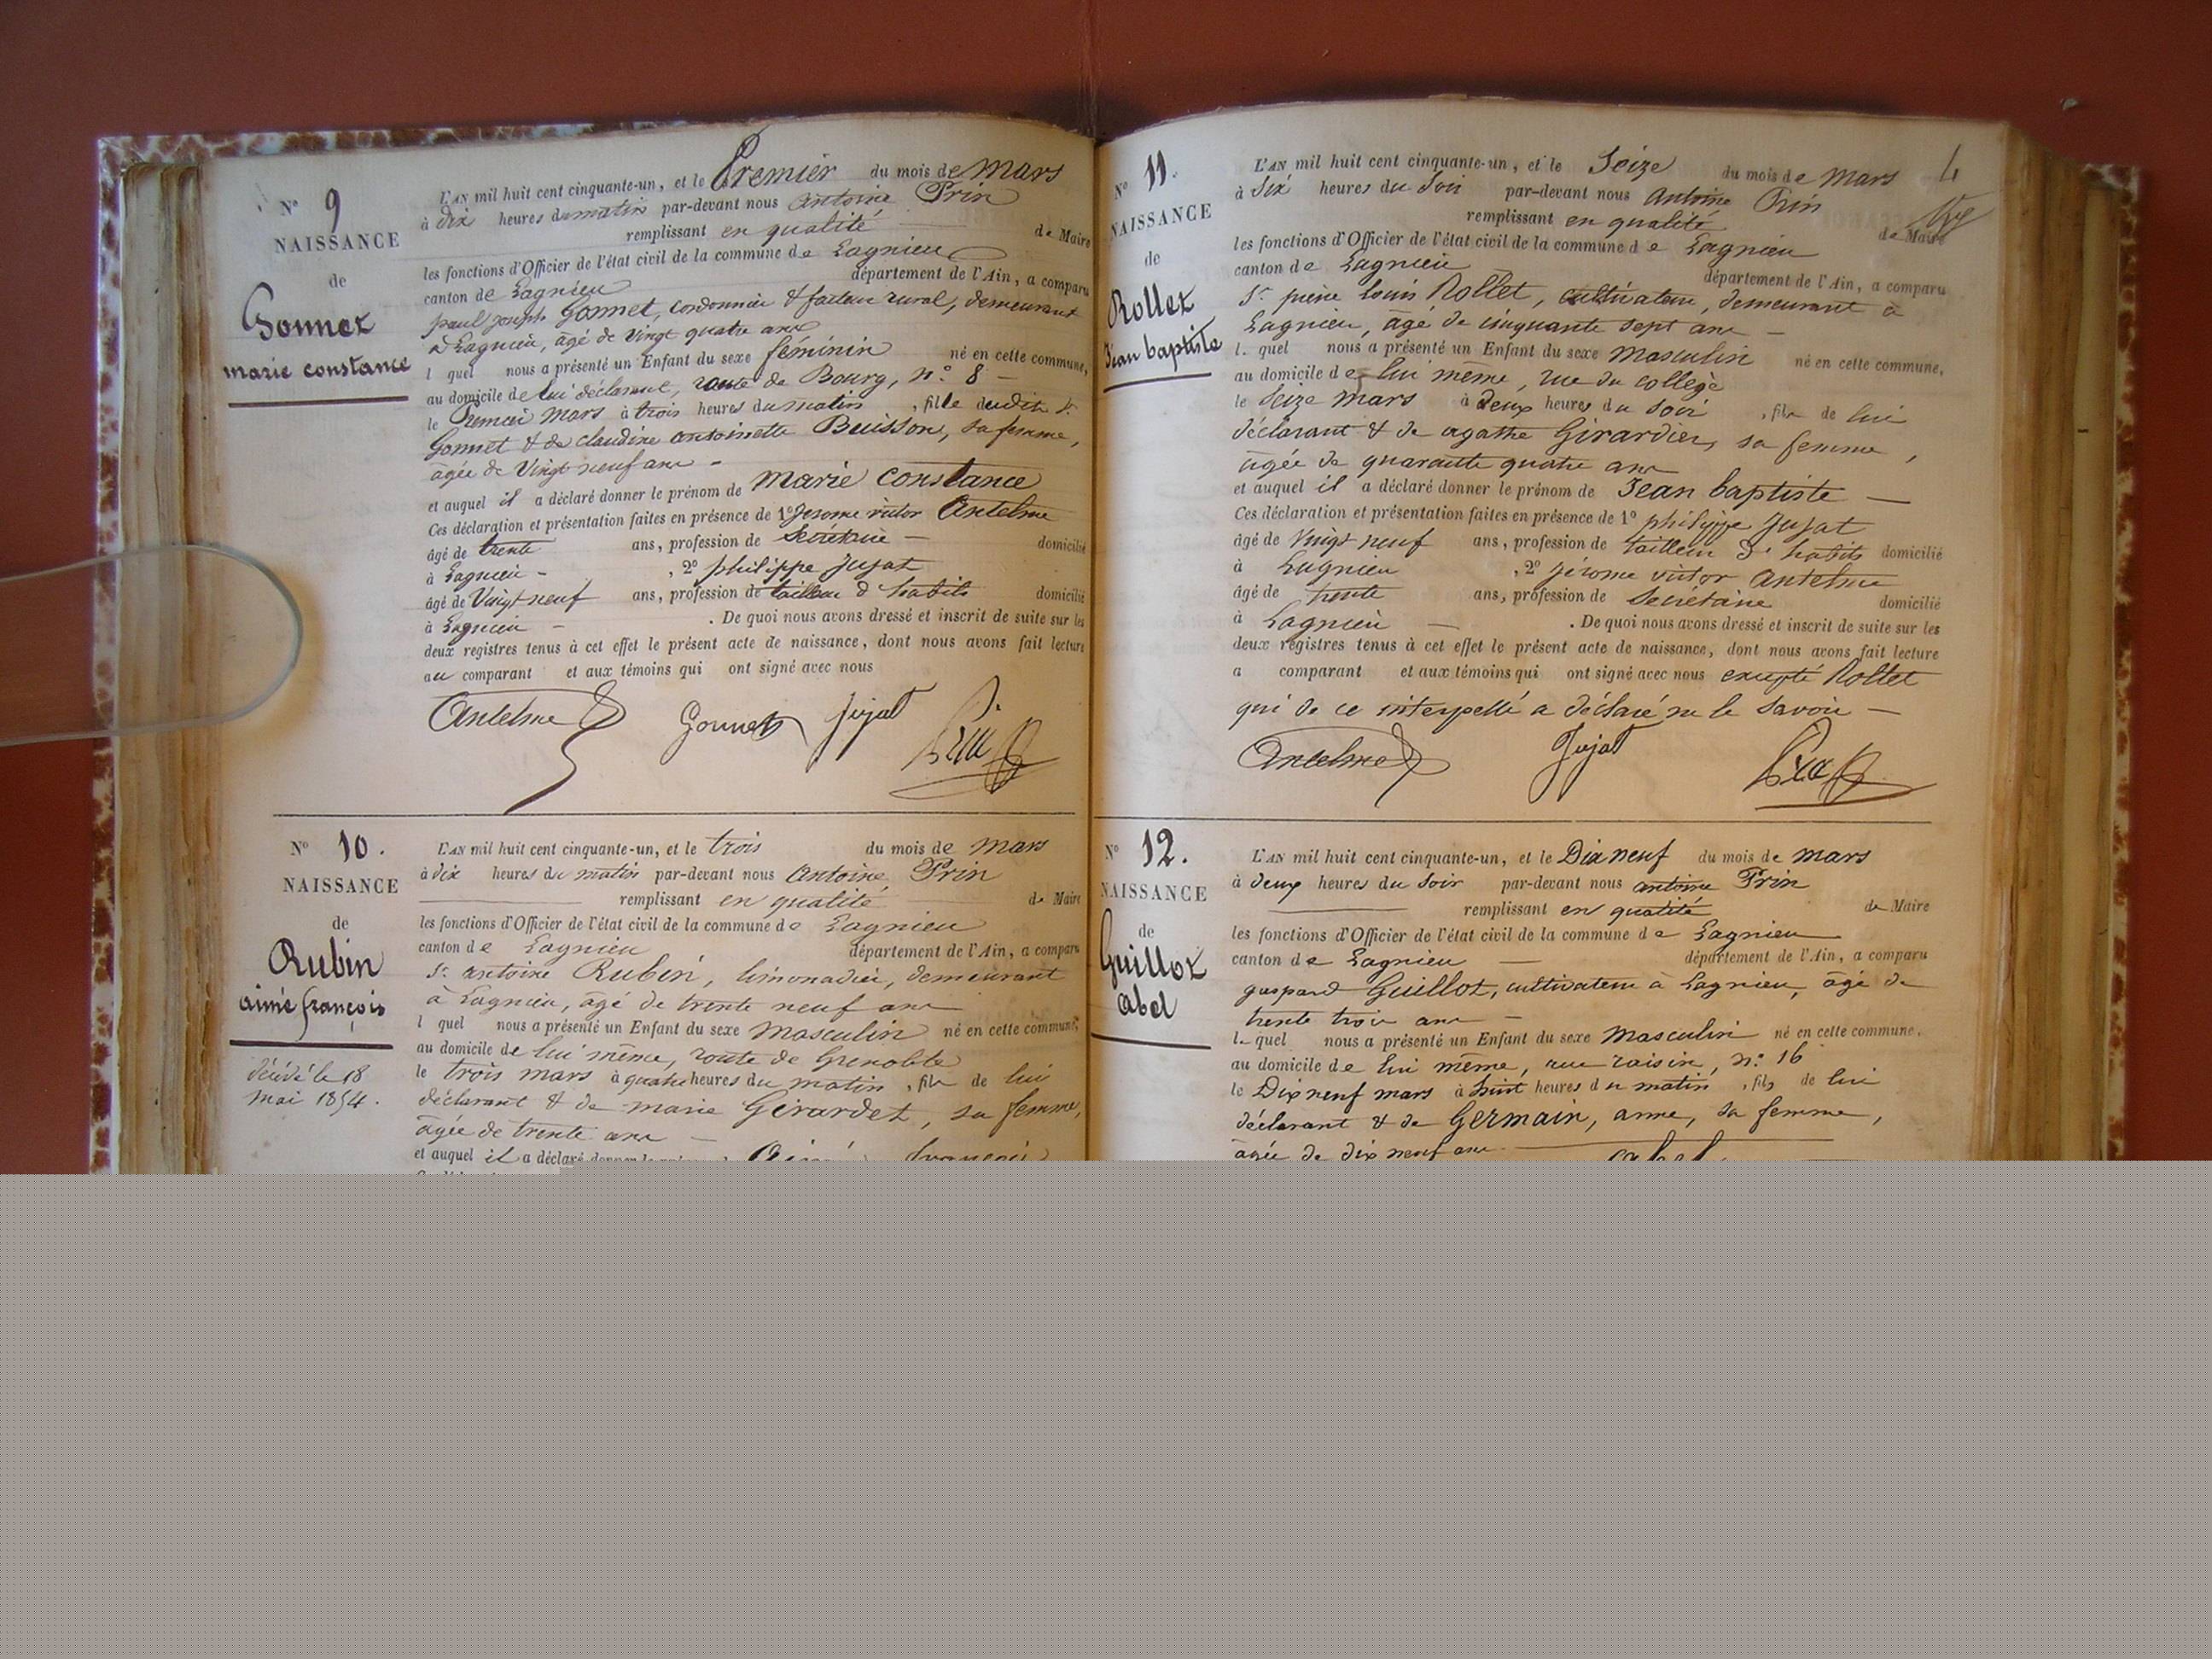 N° 9
NAISSANCE
de
Gonnet
marie constance
L'AN mil huit cent cinquante-un, et le Premier du mois de Mars
à dix heures du matin par-devant nous Antoine Prin
remplissant en qualité de Maire
les fonctions d'Officier de l'état civil de la commune de Lagnieu
canton de Lagnieu département de l'Ain, a comparu
paul joseph Gonnet, cordonnier & facteur rural, demeurant
à Lagnieu, âgé de vingt quatre ans
l quel nous a présenté un Enfant du sexe féminin né en cette commune,
au domicile de lui déclarant, route de Bourg, n° 8 —
le Premier Mars à trois heures du matin, fille dudit Sr
Gonnet & de claudine antoinette Buisson, sa femme,
âgée de Vingt neuf ans -
et auquel il a déclaré donner le prénom de Marie Constance
Ces déclaration et présentation faites en présence de 1° Jerome victor Antelme
âgé de trente ans, profession de Secrétaire — domicilié
à Lagnieu - , 2° philippe Jujat
âgé de Vingt neuf ans, profession de tailleur d'habits domicilié
à Lagnieu — . De quoi nous avons dressé et inscrit de suite sur les
deux registres tenus à cet effet le présent acte de naissance, dont nous avons fait lecture
au comparant et aux témoins qui ont signé avec nous
Antelme Gonnet Jujat Prin
N° 10.
NAISSANCE
de
Rubin
aimé françois
décédé le 18
mai 1854.
L'AN mil huit cent cinquante-un, et le trois du mois de Mars
à dix heures du matin par-devant nous Antoine Prin
remplissant en qualité de Maire
les fonctions d'Officier de l'état civil de la commune de Lagnieu
canton de Lagnieu département de l'Ain, a comparu
Sr antoine Rubin, limonadier, demeurant
à Lagnieu, âgé de trente neuf ans
l quel nous a présenté un Enfant du sexe Masculin né en cette commune,
au domicile de lui même, route de Grenoble
le trois mars à quatre heures du matin, fils de lui
déclarant & de marie Girardet, sa femme,
âgée de trente ans —
et auquel il a déclaré donner le prénom de Aimé françois
N° 11.
NAISSANCE
de
Rollet
Jean baptiste
4
L'AN mil huit cent cinquante-un, et le Seize du mois de Mars
à Six heures du Soir par-devant nous Antoine Prin
remplissant en qualité de Maire
les fonctions d'Officier de l'état civil de la commune de Lagnieu
canton de Lagnieu département de l'Ain, a comparu
Sr pierre louis Rollet, cultivateur, demeurant à
Lagnieu, âgé de cinquante sept ans —
l. quel nous a présenté un Enfant du sexe Masculin né en cette commune,
au domicile de lui même, rue du collège
le Seize Mars à Deux heures du Soir, fils de lui
déclarant & de agathe Girardier, sa femme,
âgée de quarante quatre ans
et auquel il a déclaré donner le prénom de Jean baptiste —
Ces déclaration et présentation faites en présence de 1° philippe Jujat
âgé de Vingt neuf ans, profession de tailleur d'habits domicilié
à Lagnieu , 2° Jérome victor Antelme
âgé de trente ans, profession de Secrétaire domicilié
à Lagnieu — . De quoi nous avons dressé et inscrit de suite sur les
deux registres tenus à cet effet le présent acte de naissance, dont nous avons fait lecture
a comparant et aux témoins qui ont signé avec nous excepté Rollet
qui de ce interpellé a déclaré ne le savoir —
Antelme Jujat Prin
N° 12.
NAISSANCE
de
Guillot
abel
L'AN mil huit cent cinquante-un, et le Dix neuf du mois de Mars
à deux heures du Soir par-devant nous antoine Prin
remplissant en qualité de Maire
les fonctions d'Officier de l'état civil de la commune de Lagnieu
canton de Lagnieu — département de l'Ain, a comparu
gaspard Guillot, cultivateur à Lagnieu, âgé de
trente trois ans —
l. quel nous a présenté un Enfant du sexe Masculin né en cette commune,
au domicile de lui même, rue raisin, n° 16
le Dix neuf mars à huit heures du matin, fils de lui
déclarant & de Germain, anne, sa femme,
âgée de dix neuf ans
abel